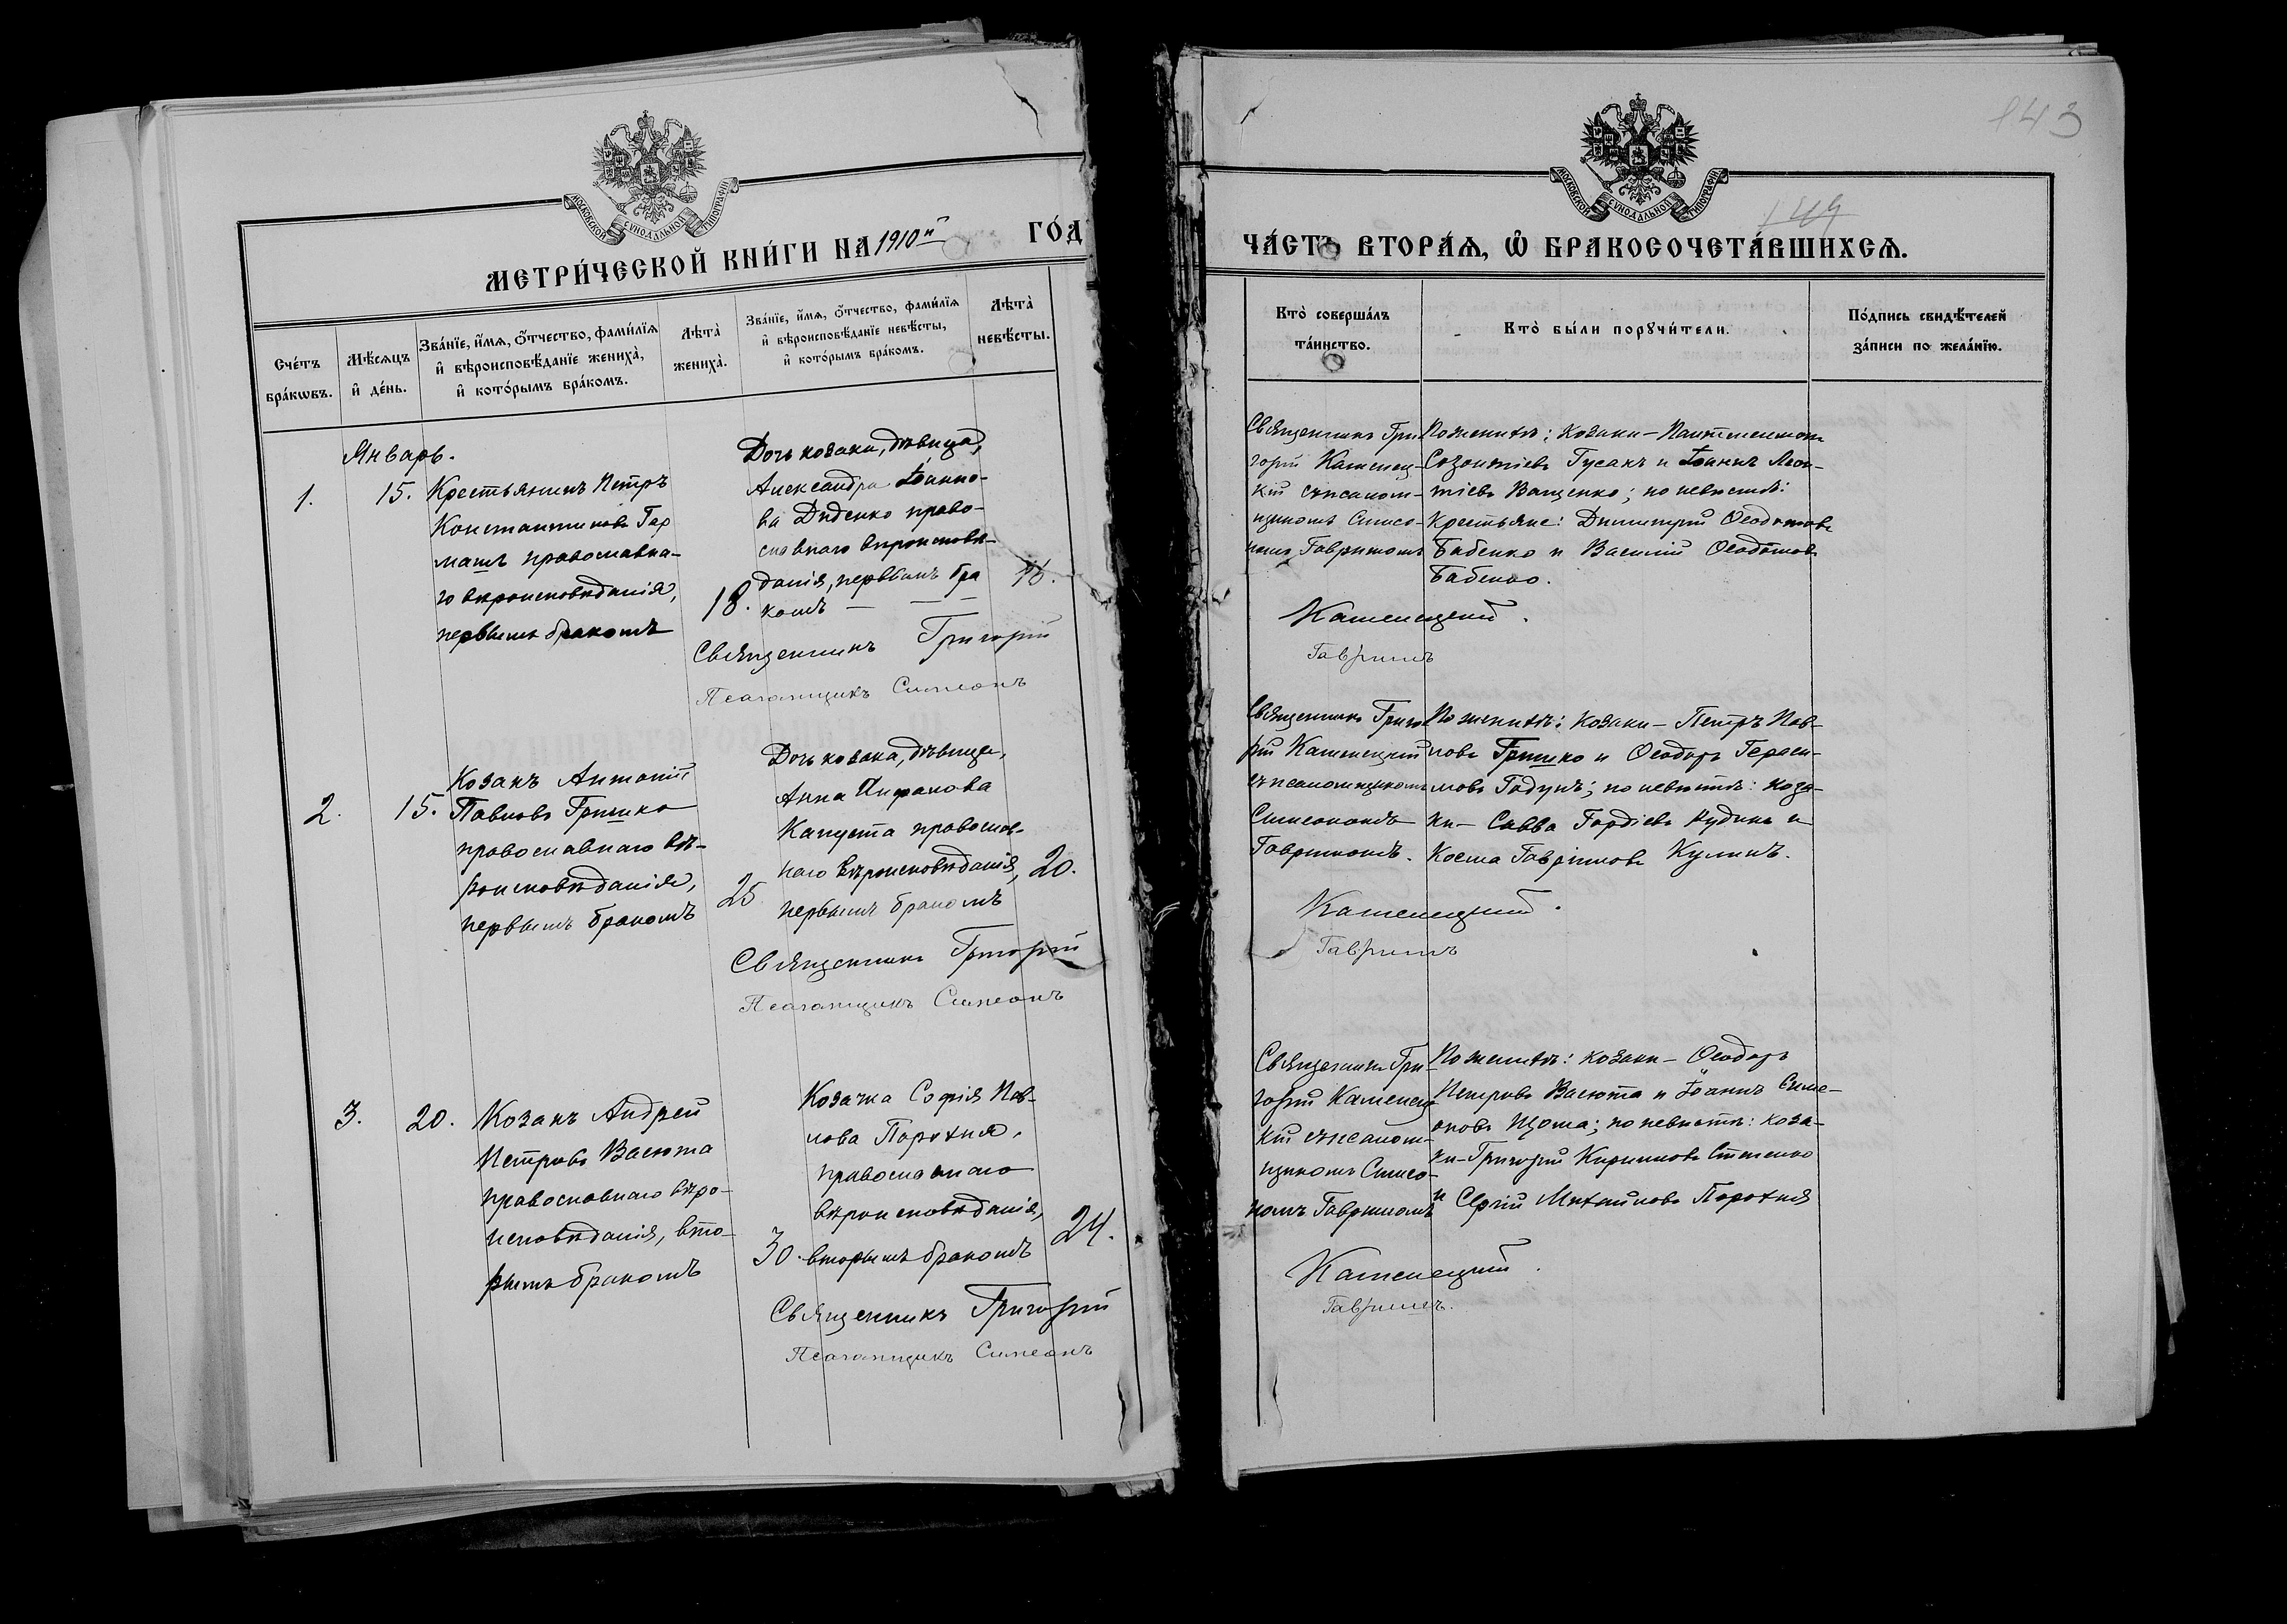 МОСКОВСКОЙ СѴНОДАЛЬНОЙ ТИПОГРАФІИ
МЕТРИ́ЧЕСКОЙ КНИ́ГИ НА 1910й ГО́Д
Сче́тъ бра́кωвъ.
Мѣ́сяцъ и҆ де́нь.
Зва́нїе, и҆́мѧ, ѻ҆́тчество, фами́лїѧ
и҆ вѣроисповѣ́данїе жениха̀,
и҆ кото́рымъ бра́комъ.
Лѣта̀ жениха̀.
Зва́нїе, и҆́мѧ, ѻ҆́тчество, фами́лїѧ
и҆ вѣроисповѣ́данїе невѣ́сты,
и҆ кото́рымъ бра́комъ.
Лѣта̀ невѣ́сты.
Январь.
1.
15.
Крестьянинъ Петръ
Константиновъ Гар
машъ православна-
го вѣроисповѣданія,
первымъ бракомъ
18.
Дочь козака, дѣвица,
Александра Іоанно-
ва Диденко право-
славнаго вѣроисповѣ-
данія, первымъ бра
комъ — — —
16.
Священникъ Григорій
Псаломщикъ Симеонъ
2.
15.
Козакъ Антоній
Павловъ Гришко
православнаго вѣ-
роисповѣданія,
первымъ бракомъ
25
Дочь козака, дѣвица,
Анна
Капуста православ-
наго вѣроисповѣданія,
первымъ бракомъ
20.
Священникъ Григорій
Псаломщикъ Симеонъ
3.
20.
Козакъ Андрей
Петровъ Васюта
православнаго вѣро-
исповѣданія, вто-
рымъ бракомъ
30.
Козачка Софія Пав-
лова Порохня,
православнаго
вѣроисповѣданія,
вторымъ бракомъ
24.
Священникъ Григорій
Псаломщикъ Симеонъ
143
149
МОСКОВСКОЙ СѴНОДАЛЬНОЙ ТИПОГРАФІИ
ЧА́СТЬ ВТОРА́Ѧ, Ѽ БРАКОСОЧЕТА́ВШИХСѦ.
Кто̀ соверша́лъ
та́инство.
Кто̀ бы́ли порꙋчи́тели.
По́дпись свидѣ́телей
за́писи по жела́нїю.
Священникъ Гри-
горій Каменец-
кій съ псалом-
щикомъ Симео-
номъ Гавришомъ
По женихѣ: козаки — Пантелеимонъ
Созонтіевъ Гусакъ и Іоаннъ Леон-
тіевъ Ващенко; по невѣстѣ:
крестьяне: Димитрій Ѳеодотовъ
Бабенко и Василій Ѳеодотовъ
Бабенко.
Каменецкій.
Гавришъ
Священникъ Григо
рій Каменецкій
съ псаломщикомъ
Симеономъ
Гавришомъ.
По женихѣ: козаки — Петръ Пав-
ловъ Гришко и Ѳеодоръ Гераси-
мовъ Гадунъ; по невѣстѣ: коза-
ки — Савва Гордіевъ Кудинъ и
Косма Гавріиловъ Кулинъ.
Каменецкій.
Гавришъ
Священникъ Гри-
горій Каменец-
кій съ псалом-
щикомъ Симео-
номъ Гавришомъ
По женихѣ: козаки — Ѳеодоръ
Петровъ Васюта и Іоаннъ Симе-
оновъ Щома; по невѣстѣ: коза-
ки — Григорій Кирилловъ Стеценко
и Сергій Михаиловъ Порохня
Каменецкій.
Гавришъ.